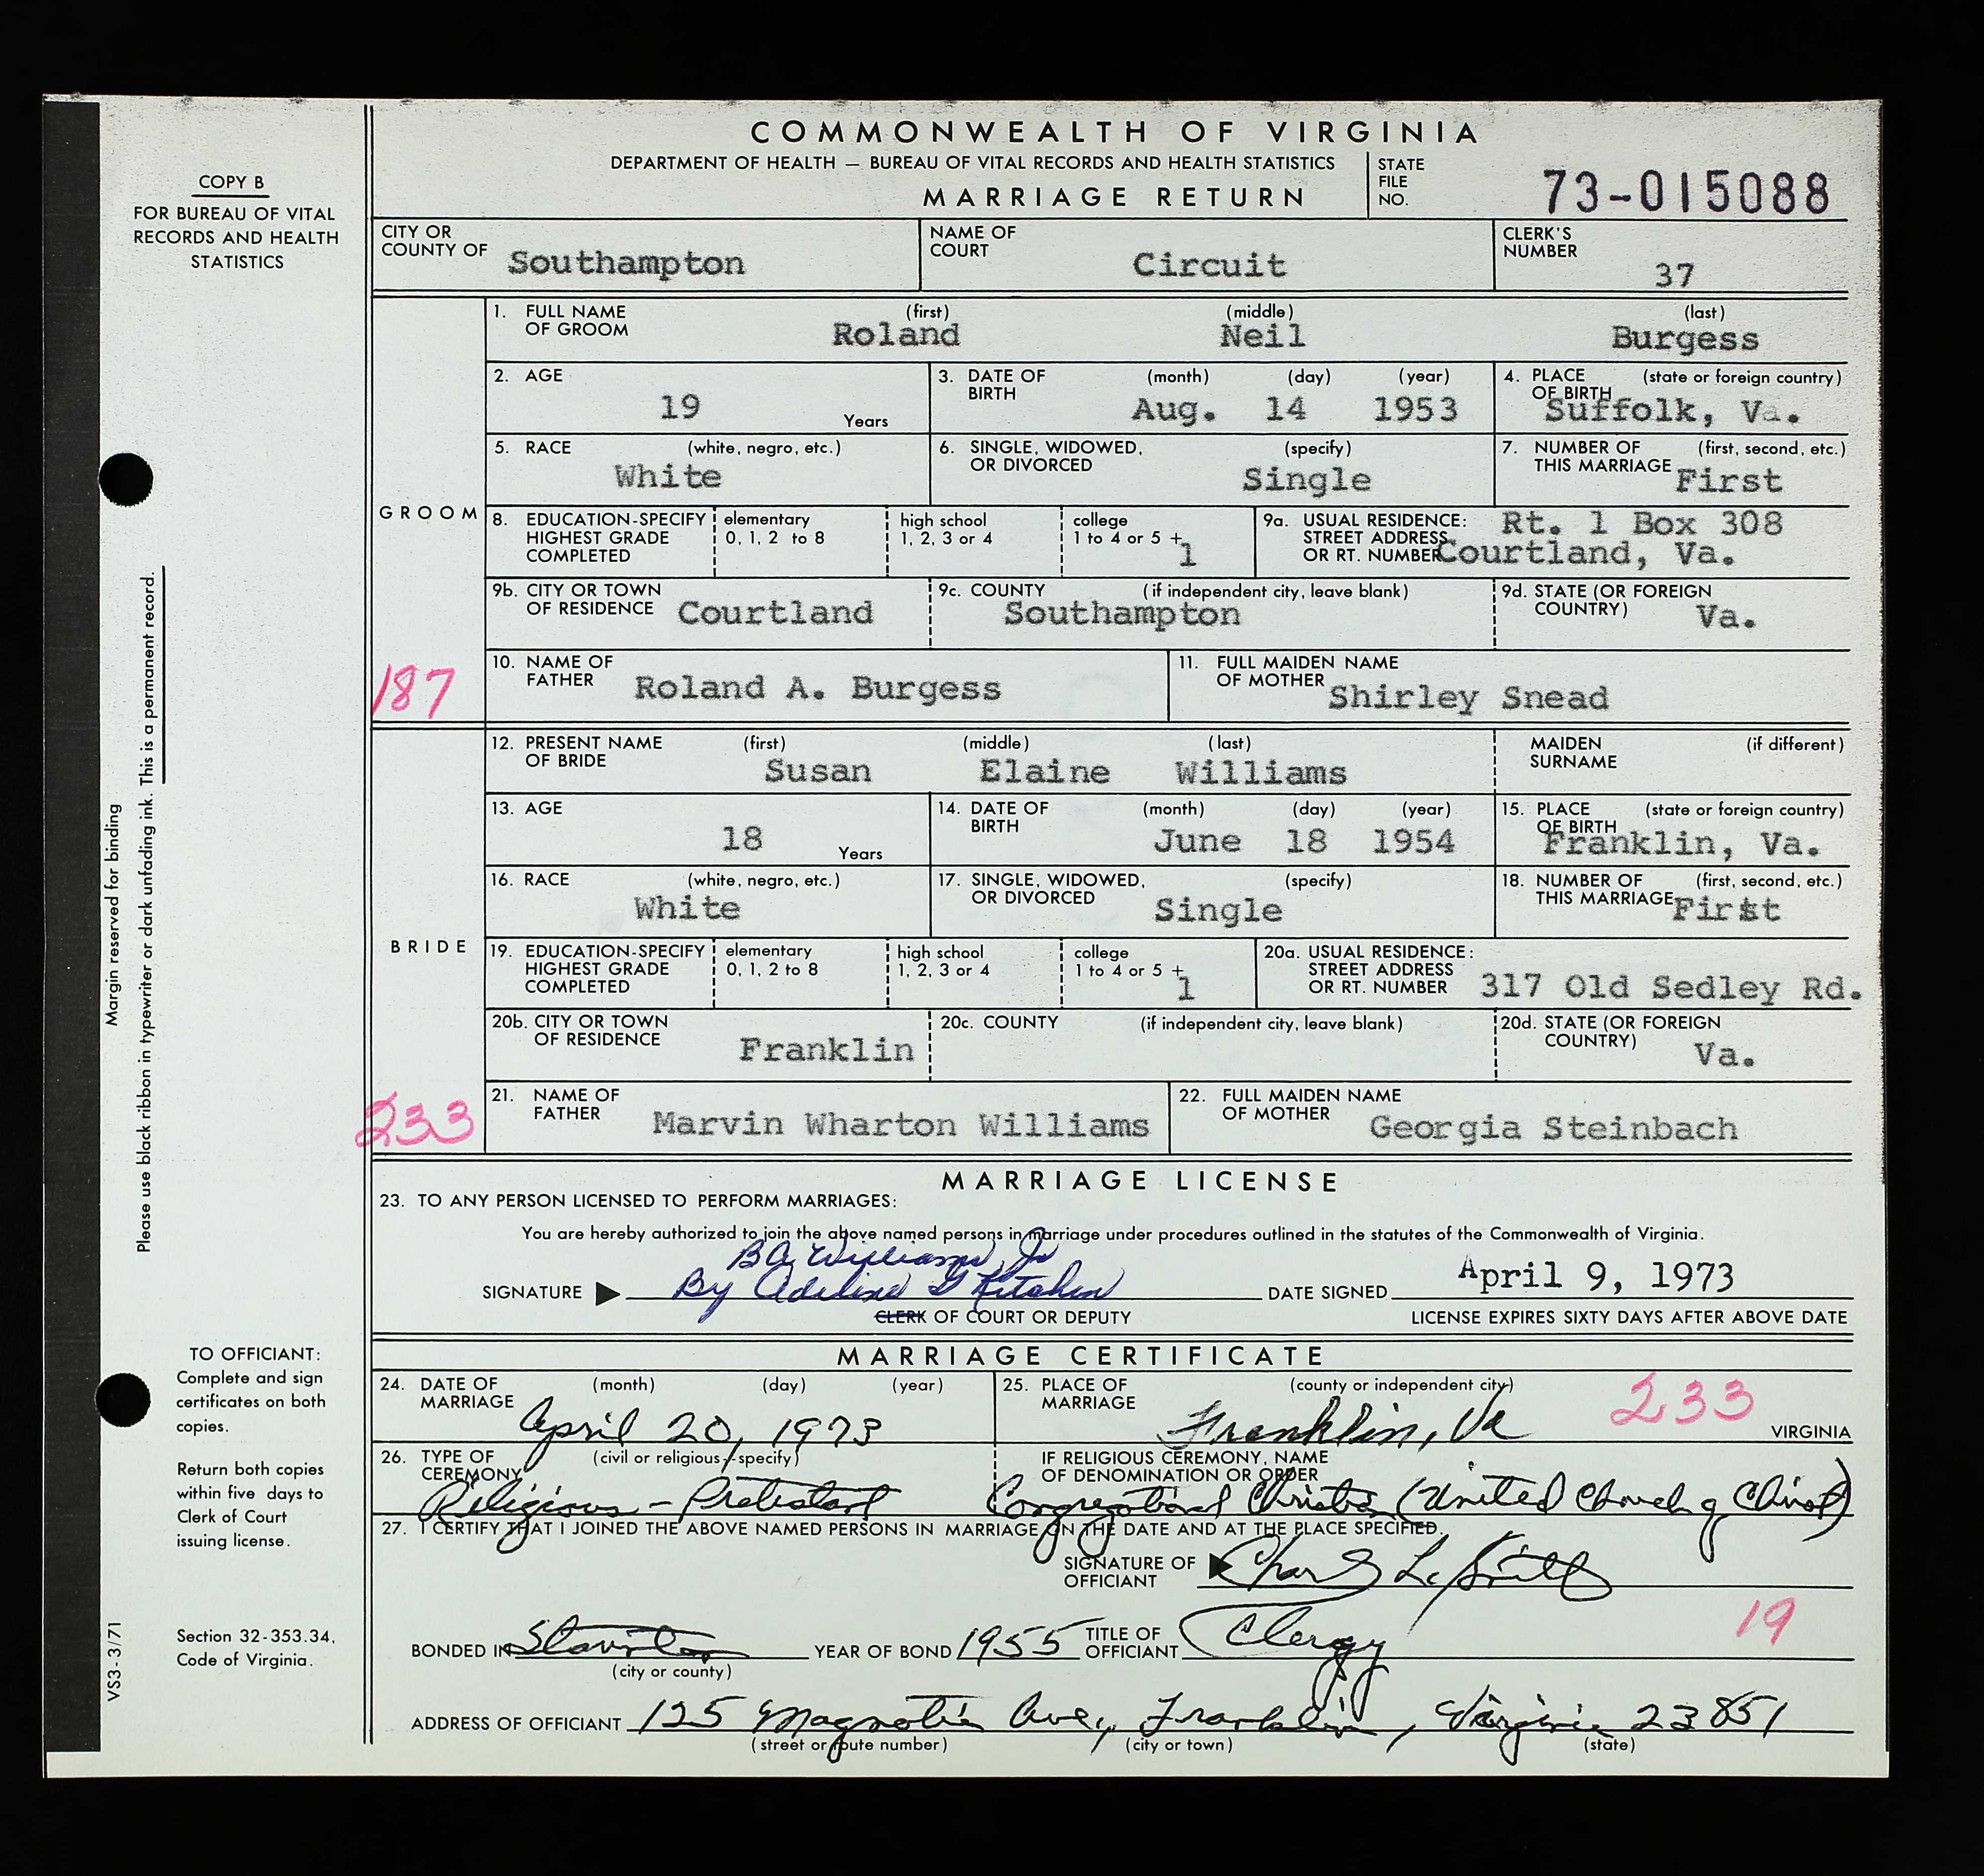 COPY B
FOR BUREAU OF VITAL
RECORDS AND HEALTH
STATISTICS
Margin reserved for binding
Please use black ribbon in typewriter or dark unfading ink. This is a permanent record.
TO OFFICIANT:
Complete and sign
certificates on both
copies.
Return both copies
within five days to
Clerk of Court
issuing license.
Section 32-353.34,
Code of Virginia.
VS3-3/71
COMMONWEALTH OF VIRGINIA
DEPARTMENT OF HEALTH — BUREAU OF VITAL RECORDS AND HEALTH STATISTICS
MARRIAGE RETURN
STATE FILE NO. 73-015088
CITY OR COUNTY OF Southampton NAME OF COURT Circuit CLERK'S NUMBER 37
GROOM
1. FULL NAME OF GROOM (first) Roland (middle) Neil (last) Burgess
2. AGE 19 Years 3. DATE OF BIRTH (month) Aug. (day) 14 (year) 1953 4. PLACE OF BIRTH (state or foreign country) Suffolk, Va.
5. RACE (white, negro, etc.) White 6. SINGLE, WIDOWED, OR DIVORCED (specify) Single 7. NUMBER OF THIS MARRIAGE (first, second, etc.) First
8. EDUCATION-SPECIFY HIGHEST GRADE COMPLETED elementary 0, 1, 2 to 8 high school 1, 2, 3 or 4 college 1 to 4 or 5 + 1 9a. USUAL RESIDENCE: STREET ADDRESS OR RT. NUMBER Rt. 1 Box 308 Courtland, Va.
9b. CITY OR TOWN OF RESIDENCE Courtland 9c. COUNTY (if independent city, leave blank) Southampton 9d. STATE (OR FOREIGN COUNTRY) Va.
187
10. NAME OF FATHER Roland A. Burgess 11. FULL MAIDEN NAME OF MOTHER Shirley Snead
BRIDE
12. PRESENT NAME OF BRIDE (first) Susan (middle) Elaine (last) Williams MAIDEN SURNAME (if different)
13. AGE 18 Years 14. DATE OF BIRTH (month) June (day) 18 (year) 1954 15. PLACE OF BIRTH (state or foreign country) Franklin, Va.
16. RACE (white, negro, etc.) White 17. SINGLE, WIDOWED, OR DIVORCED (specify) Single 18. NUMBER OF THIS MARRIAGE (first, second, etc.) First
19. EDUCATION-SPECIFY HIGHEST GRADE COMPLETED elementary 0, 1, 2 to 8 high school 1, 2, 3 or 4 college 1 to 4 or 5 + 1 20a. USUAL RESIDENCE: STREET ADDRESS OR RT. NUMBER 317 Old Sedley Rd.
20b. CITY OR TOWN OF RESIDENCE Franklin 20c. COUNTY (if independent city, leave blank) 20d. STATE (OR FOREIGN COUNTRY) Va.
233
21. NAME OF FATHER Marvin Wharton Williams 22. FULL MAIDEN NAME OF MOTHER Georgia Steinbach
MARRIAGE LICENSE
23. TO ANY PERSON LICENSED TO PERFORM MARRIAGES:
You are hereby authorized to join the above named persons in marriage under procedures outlined in the statutes of the Commonwealth of Virginia.
B A Williams, Jr
SIGNATURE By Adeline G Kitchen DATE SIGNED April 9, 1973
CLERK OF COURT OR DEPUTY LICENSE EXPIRES SIXTY DAYS AFTER ABOVE DATE
MARRIAGE CERTIFICATE
24. DATE OF MARRIAGE (month) (day) (year) April 20, 1973 25. PLACE OF MARRIAGE (county or independent city) Franklin, Va 233 VIRGINIA
26. TYPE OF CEREMONY (civil or religious-specify) Religious - Protestant IF RELIGIOUS CEREMONY, NAME OF DENOMINATION OR ORDER Congregational Christian (United Church of Christ)
27. I CERTIFY THAT I JOINED THE ABOVE NAMED PERSONS IN MARRIAGE ON THE DATE AND AT THE PLACE SPECIFIED.
SIGNATURE OF OFFICIANT
19
BONDED IN Staunton (city or county) YEAR OF BOND 1955 TITLE OF OFFICIANT Clergy
ADDRESS OF OFFICIANT 125 Magnolia Ave., Franklin, Virginia 23851
(street or route number) (city or town) (state)